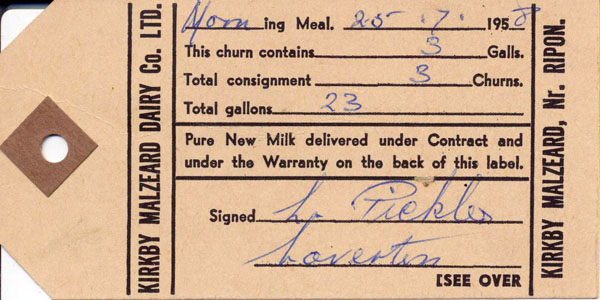 KIRKBY MALZEARD DAIRY Co. LTD.
Morning Meal. 25 . 7. 1958
This churn contains 3 Galls.
Total consignment 3 Churns.
Total gallons 23
Pure New Milk delivered under Contract and
under the Warranty on the back of this label.
Signed L. Pickles
Laverton
[SEE OVER
KIRKBY MALZEARD, Nr. RIPON.